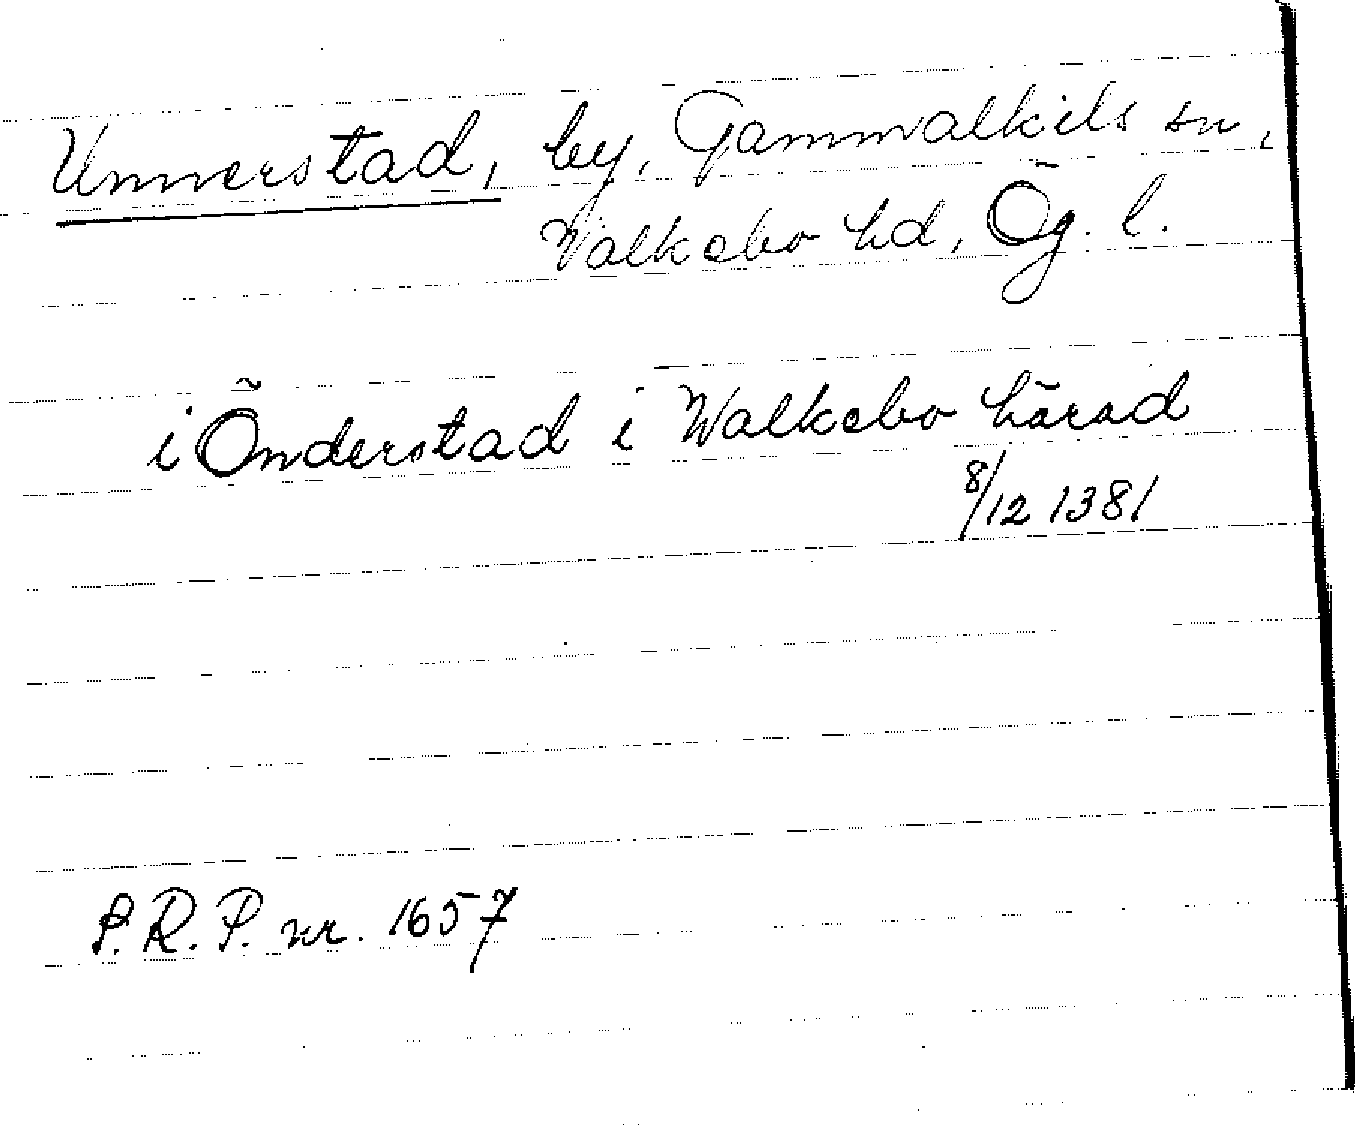 Unnerstad, by, Gammalkils sn,
Valkebo hd, Ög. l.
i Önderstad i Walkebo härad
8/12 1381
P.R.P. nr. 1657